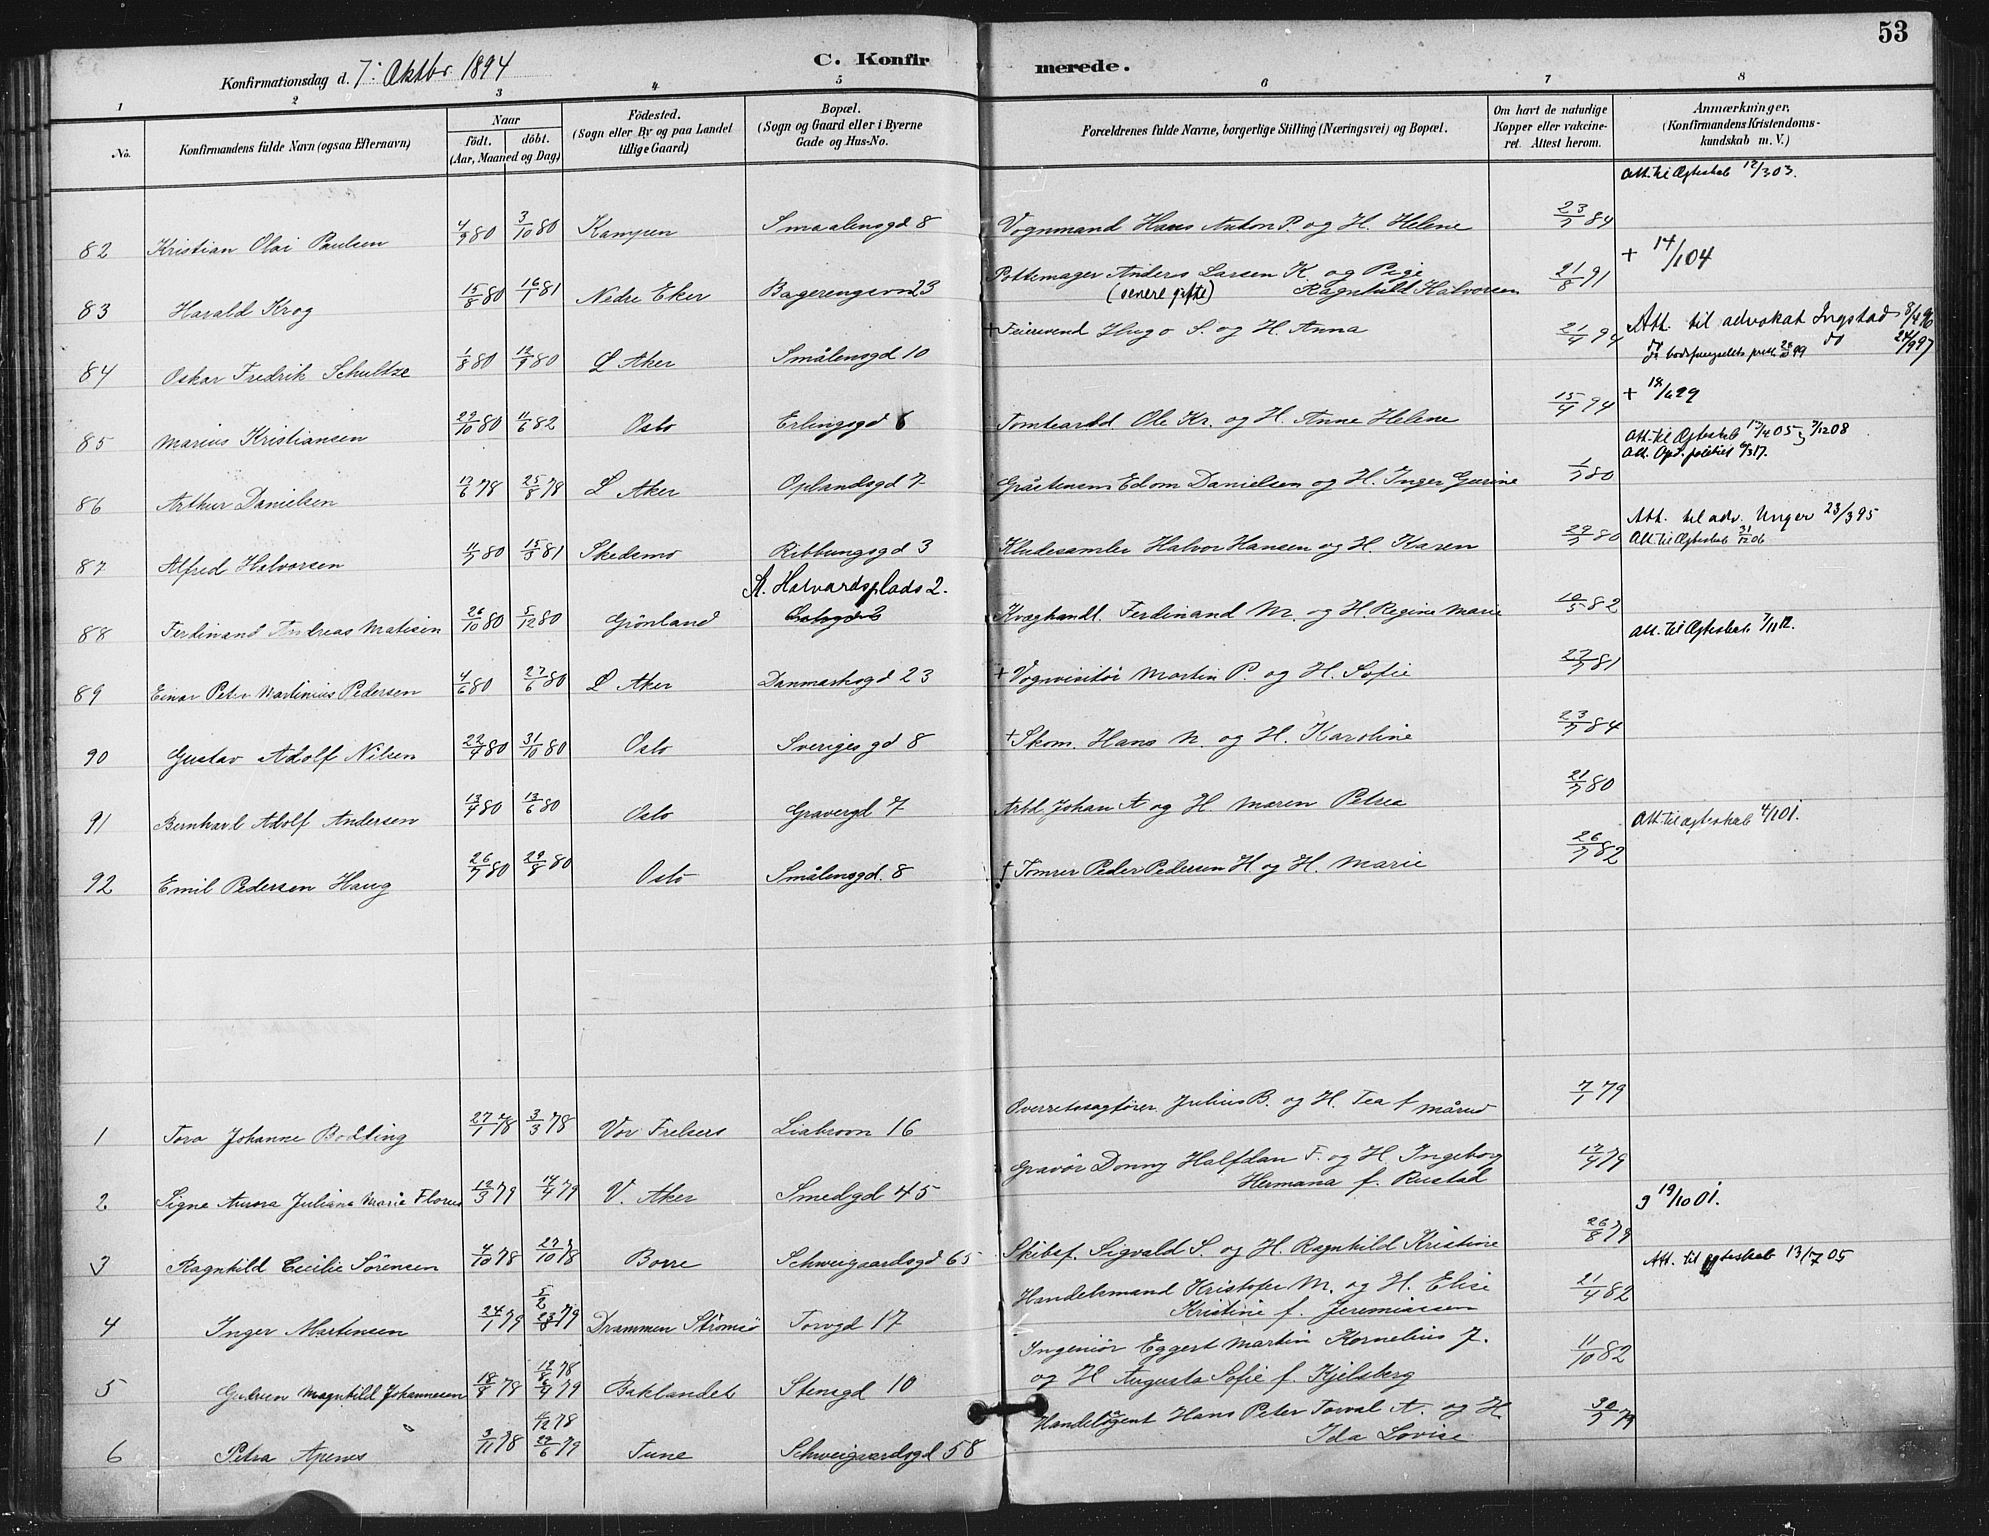 53
Konfirmationsdag d. 7: Oktbr. 1894
C. Konfirmerede.
1 2 3 4 5 6 7 8
No.
Konfirmandens fulde Navn (ogsaa Efternavn)
Naar
födt. döbt.
(Aar, Maaned og Dag)
Födested.
(Sogn eller By og paa Landet
tillige Gaard)
Bopæl.
(Sogn og Gaard eller i Byerne
Gade og Hus-No.
Forældrenes fulde Navne, borgerlige Stilling (Næringsvei) og Bopæl.
Om havt de naturlige
Kopper eller vakcine-
ret. Attest herom.
Anmærkninger,
(Konfirmandens Kristendoms-
kundskab m. V.)
Att. til Ægteskab 12/3 03.
82 Kristian Olai Paulsen 4/9 80 3/10 80 Kampen Smaalensgd 8 Vognmand Hans Anton P. og H. Helene 23/7 84
+ 14/1 04
83 Harald Krog 15/8 80 16/1 81 Nedre Eker Bagerengveien 23 Pottemager Anders Larsen K. og Pige
(senere gifte) Ragnhild Halvorsen 21/8 91
84 Oskar Fredrik Schultze 1/8 80 19/9 80 Ö. Aker Smålensgd 10 + Feiersvend Hugo S. og H. Anna 21/4 94
Att. til advokat Ingstad 8/4 96
do do 24/9 97
+ 18/6 29
85 Marius Kristiansen 29/10 80 11/6 82 Oslo Erlingsgd 6 Tomtearbd Ole Kr. og H. Anne Helene 15/4 94
Att. til Ægteskab 13/4 05; 3/12 08
Att. Opd. politiet 6/3 17.
86 Arthur Danielsen 17/6 78 25/8 78 Ö. Aker Oplandsgd 7 Gråstensm Edom Danielsen og H. Inger Gurine 1/7 80
Att. til adv. Unger 23/3 95
Att. til Ægteskab 31/12 06
87 Alfred Halvorsen 11/7 80 15/3 81 Skedsmo Ribbungsgd 3 Kludesamler Halvor Hansen og H. Karen 29/7 80
St. Halvardsplads 2.
88 Ferdinand Andreas Matisen 26/10 80 5/12 80 Grönland Kvæghandl. Ferdinand M. og H. Regine Marie 10/5 82
Att. til Ægteskab 7/11 12.
89 Einar Peter Martinius Pedersen 4/6 80 27/6 80 Ö. Aker Danmarksgd 23 + Vognvisitör Martin P. og H. Sofie 27/7 81
90 Gustav Adolf Nilsen 22/9 80 31/10 80 Oslo Sverigesgd 8 + Skom. Hans N. og H. Karoline 23/7 84
91 Bernhard Adolf Andersen 13/4 80 13/6 80 Oslo Gravergd 7 Arbd. Johan A. og H. Maren Petrea 21/7 80
Att. til ægteskab 4/1 01.
92 Emil Pedersen Haug 26/7 80 29/8 80 Oslo Smålensgd. 8 + Tömrer Peder Pedersen H. og H. Marie 26/7 82
1 Tora Johanne Bodting 27/1 78 3/3 78 Vor Frelsers Liabroen 16 Overretssagförer Julius B. og H. Tea f Mårud 7/1 79
2 Signe Aurora Juliane Marie Florus 12/3 79 14/4 79 V. Aker Smedgd 45 Gravör Donny Halfdan F. og H. Ingeborg
Hermana f. Rustad 17/4 79
3 19/10 01.
3 Ragnhild Cecilie Sörensen 4/10 78 27/10 78 Borre Schweigaardsgd 65 Skibsf. Sigvald S. og H. Ragnhild Kristine 26/8 79
Att. til ægteskab 13/7 05
4 Inger Martensen 24/1 79 5/2 23/8 79 Drammen Strömsö Torvgd 17 Handelsmand Kristofer M. og H. Elise
Kristine f. Jeremiassen 21/4 82
5 Gudrun Magnhild Johannesen 18/8 78 19/8 78 6/4 79 Baklandet Stensgd 10 Ingeniör Eggert Martin Kornelius J.
og H Augusta Sofie f. Kjelsberg 11/10 82
6 Petra Apenes 3/11 78 4/12 78 29/6 79 Tune Schweigaardsgd 58 Handelsagent Hans Peter Torval A. og H.
Ida Lovise 30/7 79